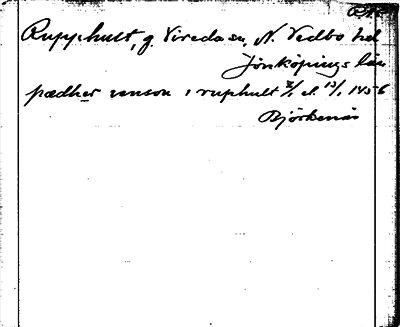 Rupphult, g. Vireda sn, N. Vedbo hd
Jönköpings län
pædher renson i ruphult 2/1 el. 13/1 1456
Björkenäs